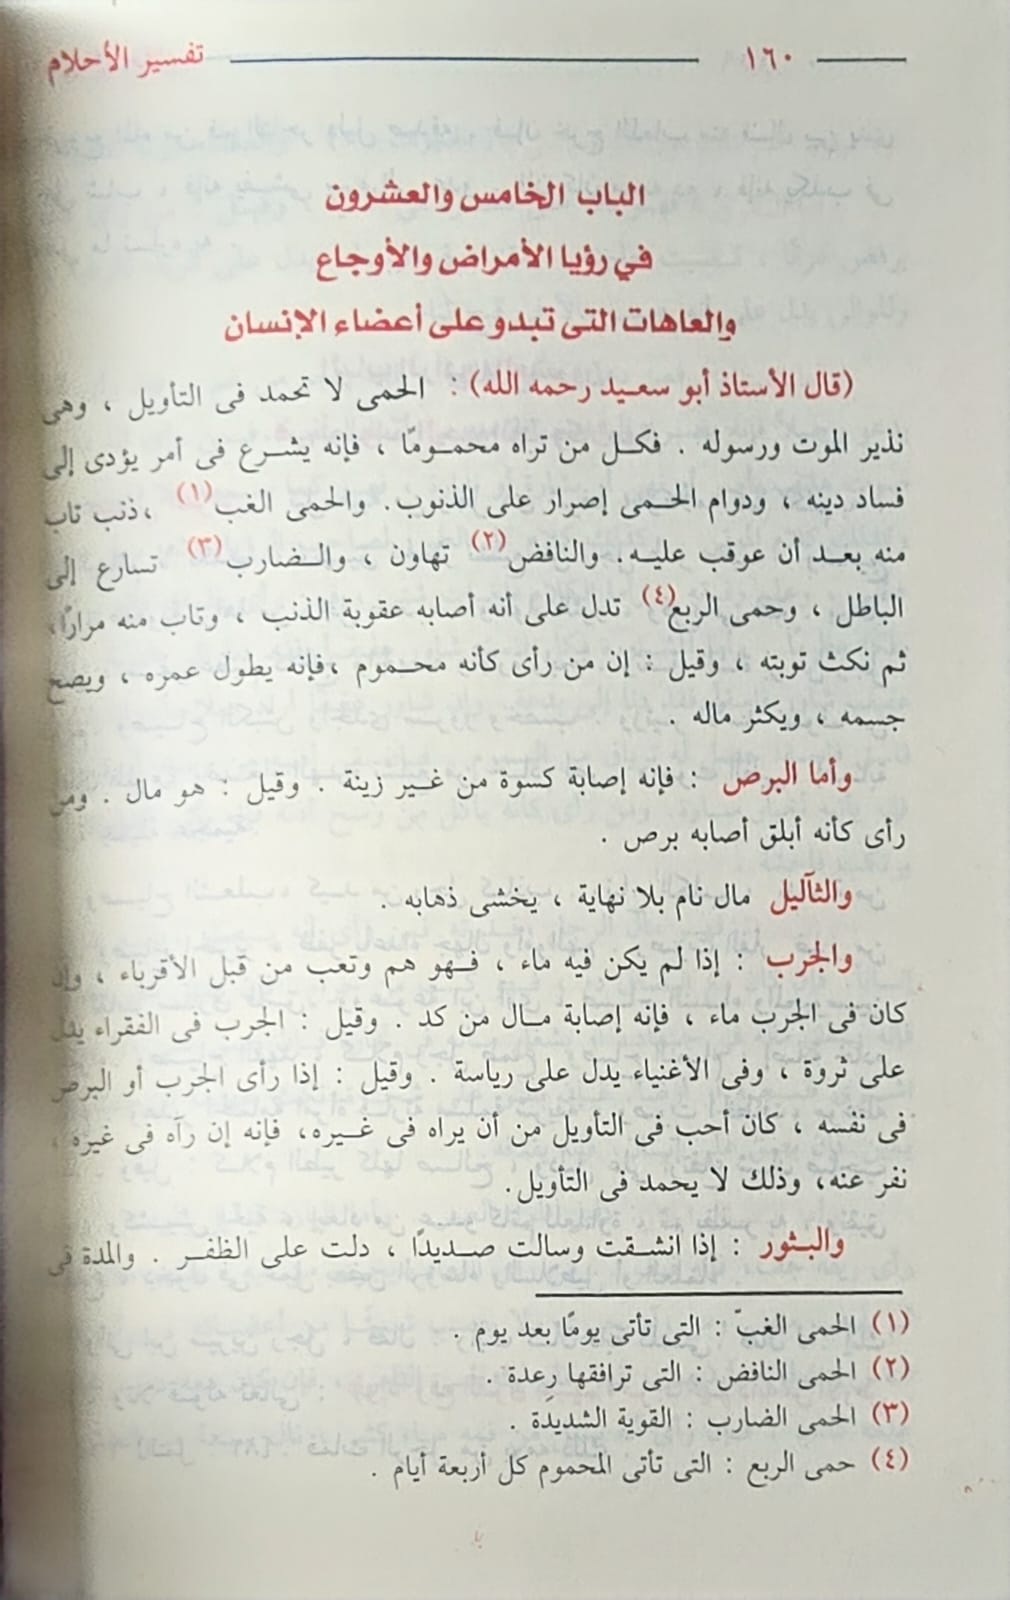 ١٦٠ تفسير الأحلام
الباب الخامس والعشرون
في رؤيا الأمراض والأوجاع
والعاهات التى تبدو على أعضاء الإنسان
(قال الأستاذ أبو سعيد رحمه الله) : الحمى لا تحمد فى التأويل ، وهى
نذير الموت ورسوله . فكل من تراه محمومًا ، فإنه يشرع فى أمر يؤدى إلى
فساد دينه ، ودوام الحمى إصرار على الذنوب. والحمى الغب (١) ،ذنب تاب
منه بعد أن عوقب عليه. والنافض(٢) تهاون ، والضارب(٣) تسارع إلى
الباطل ، وحمى الربع(٤) تدل على أنه أصابه عقوبة الذنب ، وتاب منه مرارًا،
ثم نكث توبته ، وقيل : إن من رأى كأنه محموم ،فإنه يطول عمره ، ويصح
جسمه ، ويكثر ماله .
وأما البرص : فإنه إصابة كسوة من غير زينة . وقيل : هو مال . ومن
رأى كأنه أبلق أصابه برص .
والثآليل مال نام بلا نهاية ، يخشى ذهابه .
والجرب : إذا لم يكن فيه ماء ، فهو هم وتعب من قبل الأقرباء ، وإن
كان فى الجرب ماء ، فإنه إصابة مال من كد . وقيل : الجرب فى الفقراء يدل
على ثروة ، وفى الأغنياء يدل على رياسة . وقيل : إذا رأى الجرب أو البرص
فى نفسه ، كان أحب فى التأويل من أن يراه فى غيره، فإنه إن رآه فى غيره ،
نفر عنه، وذلك لا يحمد فى التأويل.
والبثور : إذا انشقت وسالت صديدًا ، دلت على الظفر . والمدة فى
(١) الحمى الغبّ : التى تأتى يومًا بعد يوم .
(٢) الحمى النافض : التى ترافقها رِعدة .
(٣) الحمى الضارب : القوية الشديدة .
(٤) حمى الربع : التى تأتى المحموم كل أربعة أيام .